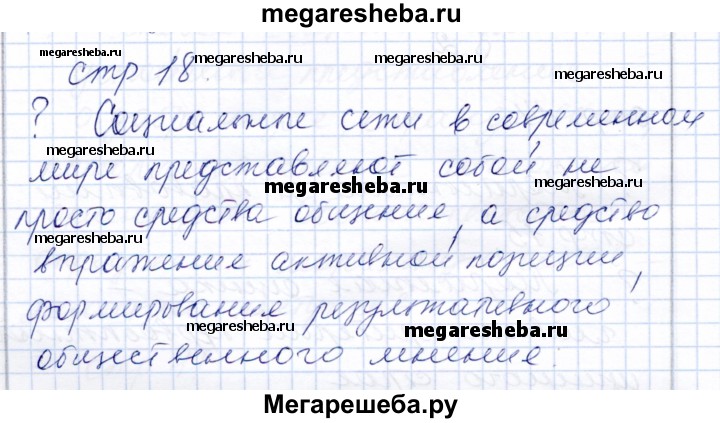 megaresheba.ru
megaresheba.ru
megaresheba.ru
стр 18.
megaresheba.ru
? Социальные сети в современном
мире представляют собой не
megaresheba.ru
megaresheba.ru
просто средства общения, а средство
megaresheba.ru
выражение активной позиции,
формирования результативного
megaresheba.ru
megaresheba.ru
общественного мнения.
Мегарешеба.ру